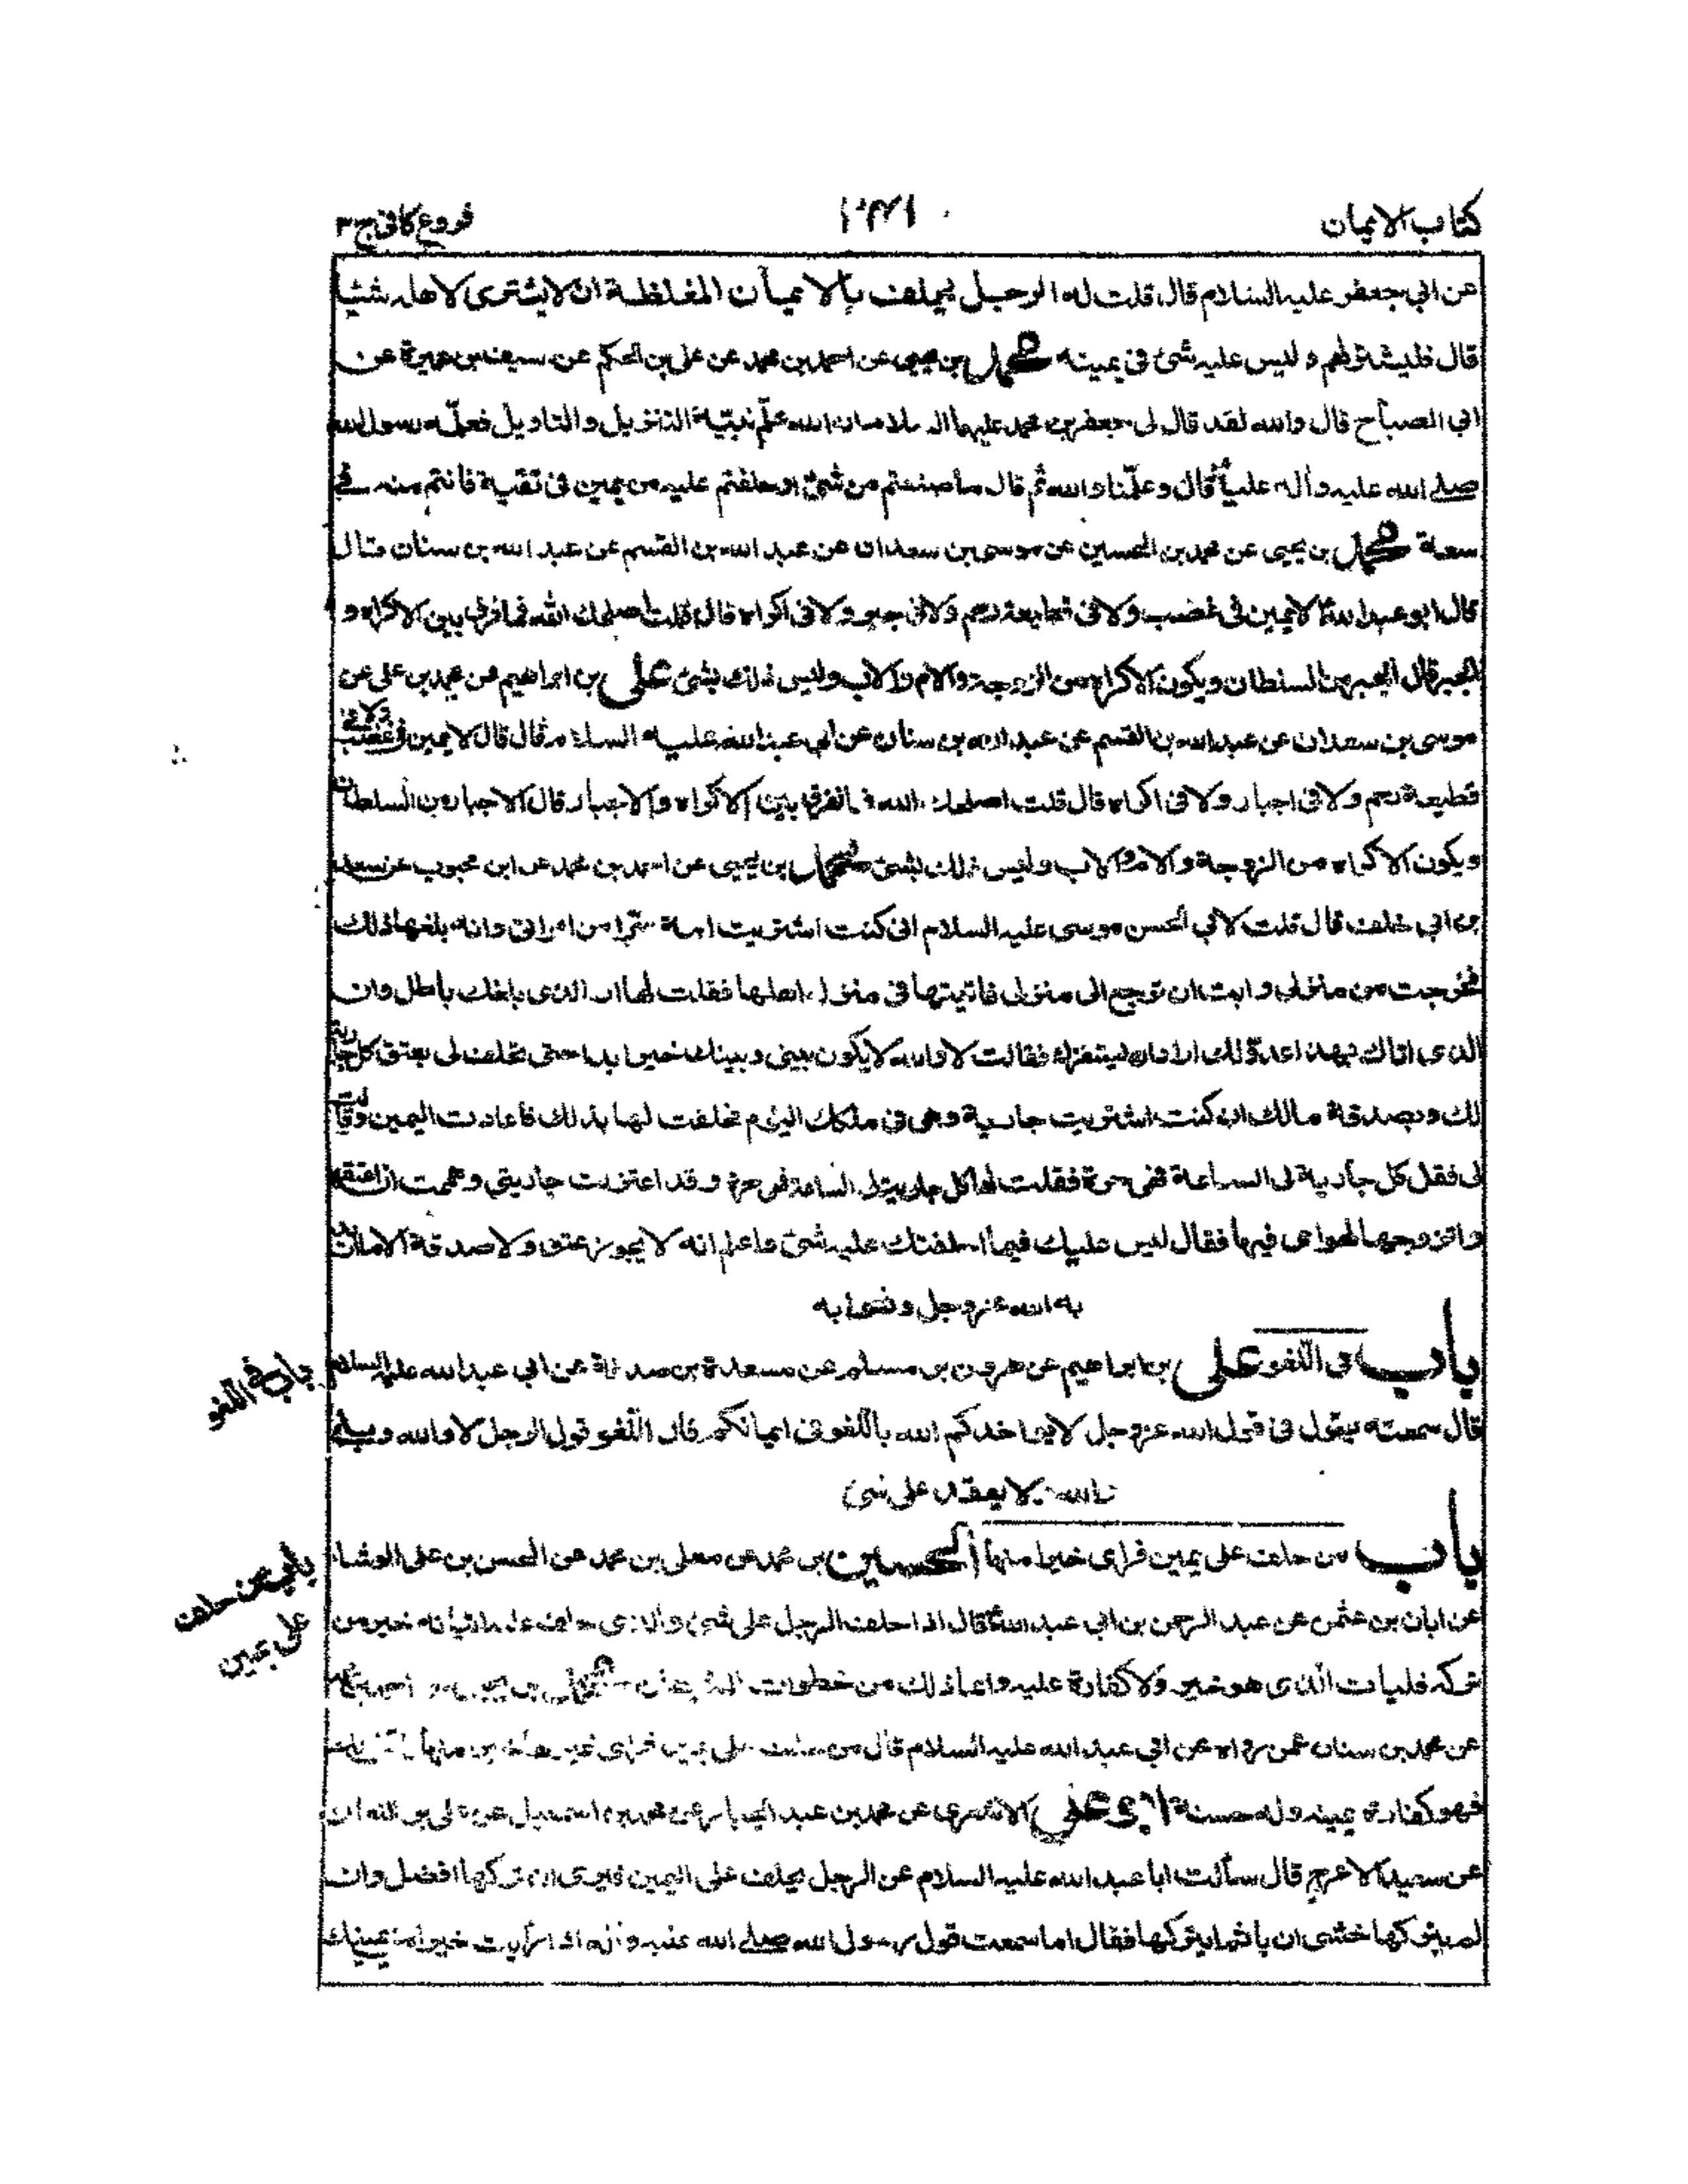 كتاب الايمان
فروع كافى ج ٣
عن ابي جعفر عليه السلام قال قلت له الرجل يحلف بالايمان المغلظة ان لا يشترى لاهله شيئا
قال فليشتر لهم وليس عليه شئ فى يمينه محمد بن يحيى عن احمد بن محمد عن على بن الحكم عن سيف بن عميرة عن
ابي الصباح قال والله لقد قال لى جعفر بن محمد عليهما السلام ان الله علّم نبيّه التنزيل والتاويل فعلّمه رسول الله
صلى الله عليه وآله عليّاً قال وعلّمنا والله ثم قال ما صنعتم من شئ او حلفتم عليه من يمين فى تقية فانتم منه فى
سعة محمد بن يحيى عن محمد بن الحسين عن موسى بن سعدان عن عبد الله بن القسم عن عبد الله بن سنان قال
قال ابو عبد الله لا يمين فى غضب ولا فى قطيعة رحم ولا فى جبر ولا فى اكراه قال قلت اصلحك الله فما فرق بين الاكراه و
الجبر قال الجبر من السلطان ويكون الاكراه من الزوجة والام والاب وليس ذلك بشئ على بن ابراهيم عن محمد بن على عن
موسى بن سعدان عن عبد الله بن القسم عن عبد الله بن سنان عن ابي عبد الله عليه السلام قال قال لا يمين فى غضب ولا فى
قطيعة رحم ولا فى اجبار ولا فى اكراه قال قلت اصلحك الله فما الفرق بين الاكراه والاجبار قال الاجبار من السلطان
ويكون الاكراه من الزوجة والام والاب وليس ذلك بشئ محمد بن يحيى عن احمد بن محمد عن ابن محبوب عن سعد
بن ابي خلف قال قلت لابي الحسن موسى عليه السلام انى كنت اشتريت امة سرّا من امراتى وانه بلغها ذلك
فخرجت من منزلى وابت ان ترجع الى منزلى فاتيتها فى منزل اهلها فقلت لها ان الذى بلغك باطل وان
الذى اتاك بهذا عدو لك اراد ان يستفزك فقالت لا والله لا يكون بينى وبينك خير ابدا حتى تحلف لى بعتق كل جارية
لك وبصدقة مالك ان كنت اشتريت جارية وهى فى ملكك اليوم فحلفت لها بذلك فاعادت اليمين وقالت
لى فقل كل جارية لى الساعة فهى حرة فقلت لها كل جارية لى الساعة فهى حرة وقد اعتزلت جاريتى وهممت ان اعتقها
واتزوجها لهواى فيها فقال ليس عليك فيما احلفتك عليه شئ واعلم انه لا يجوز عتق ولا صدقة الا ما اريد
به الله عز وجل وثوابه
باب فى اللّغو على بن ابراهيم عن هرون بن مسلم عن مسعدة بن صدقة عن ابي عبد الله عليه السلام
باب فى اللّغو
قال سمعته يقول فى قول الله عز وجل لا يؤاخذكم الله باللّغو فى ايمانكم قال اللّغو قول الرجل لا والله وبلى
والله ولا يعقد على شئ
باب من حلف على يمين فراى خيرا منها الحسين بن محمد عن معلى بن محمد عن الحسن بن على الوشاء
باب من حلف
على يمين
عن ابان بن عثمن عن عبد الرحمن بن ابي عبد الله قال اذا حلف الرجل على شئ والذى حلف عليه اتيانه خير من
تركه فليات الذى هو خير ولا كفارة عليه وانما ذلك من خطوات الشيطان محمد بن يحيى عن احمد بن محمد
عن محمد بن سنان عمن رواه عن ابي عبد الله عليه السلام قال من حلف على يمين فراى غيرها خيرا منها فاتى ذلك
فهو كفارة يمينه وله حسنة ابو على الاشعرى عن محمد بن عبد الجبار عن محمد بن اسمعيل عن على بن النعمان
عن سعيد الاعرج قال سألت ابا عبد الله عليه السلام عن الرجل يحلف على اليمين فيرى ان تركها افضل وان
لم يتركها خشى ان ياثم ايتركها فقال اما سمعت قول رسول الله صلى الله عليه وآله اذا رأيت خيرا من يمينك